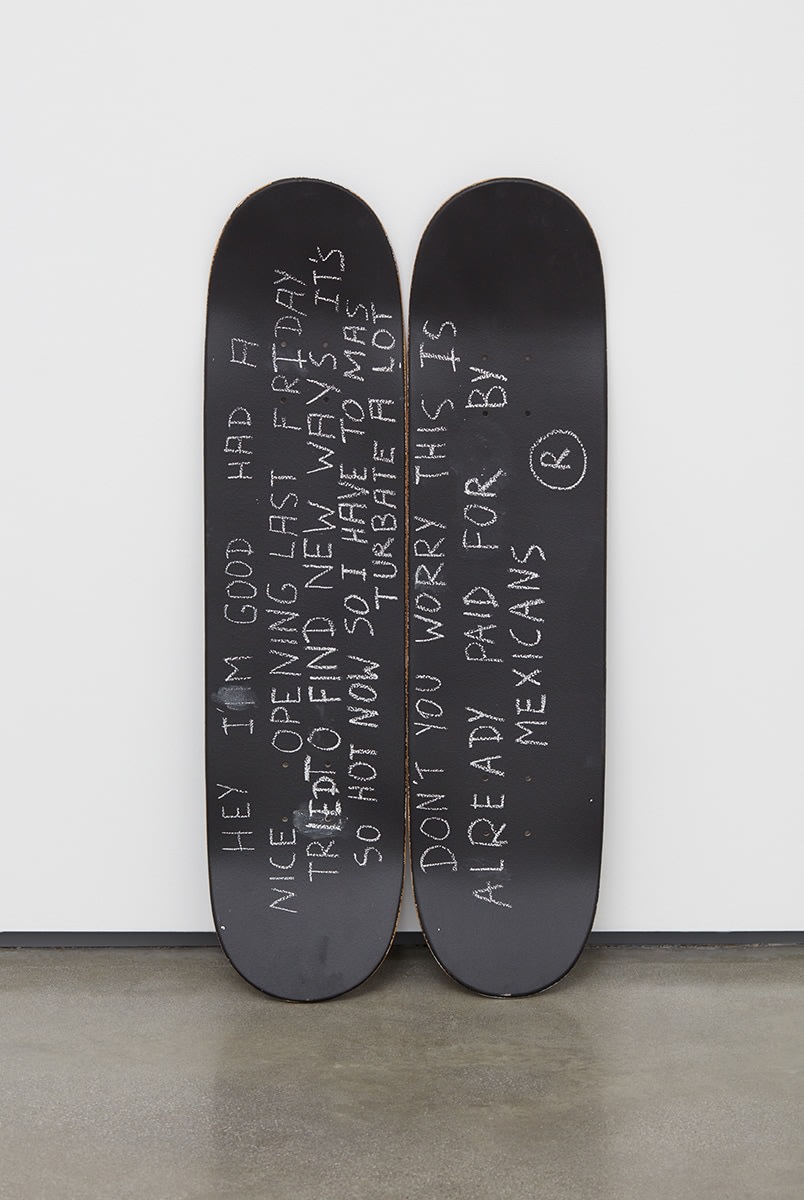 HEY I'M GOOD HAD A
NICE OPENING LAST FRIDAY
TRIED TO FIND NEW WAYS IT'S
SO HOT NOW SO I HAVE TO MAS
TURBATE A LOT
DON'T YOU WORRY THIS IS
ALREADY PAID FOR BY
MEXICANS ®